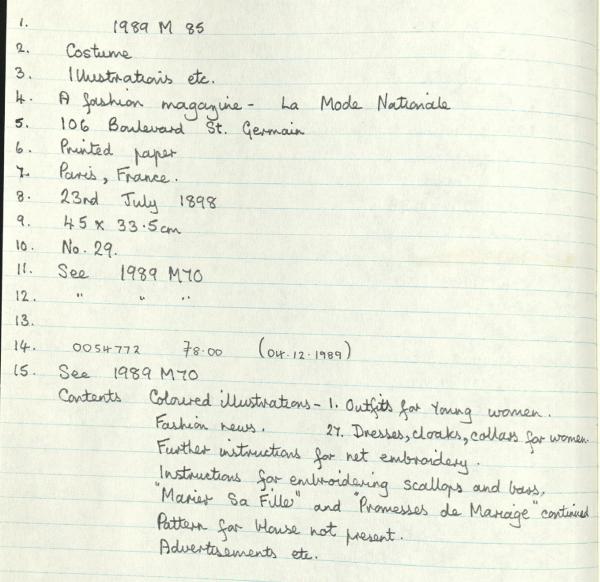 1. 1989 M 85
2. Costume
3. Illustrations etc.
4. A fashion magazine - La Mode Nationale
5. 106 Boulevard St. Germain
6. Printed paper
7. Paris, France.
8. 23rd July 1898
9. 45 x 33.5cm
10. No. 29.
11. See 1989 M70
12. " " "
13.
14. 0054772 78.00 (04.12.1989)
15. See 1989 M70
Contents Coloured illustrations - 1. Outfits for Young women.
Fashion news. 27. Dresses, cloaks, collars for women.
Further instructions for net embroidery.
Instructions for embroidering scallops and bars.
"Marier Sa Fille" and "Promesses de Mariage" continued
Pattern for blouse not present.
Advertisements etc.